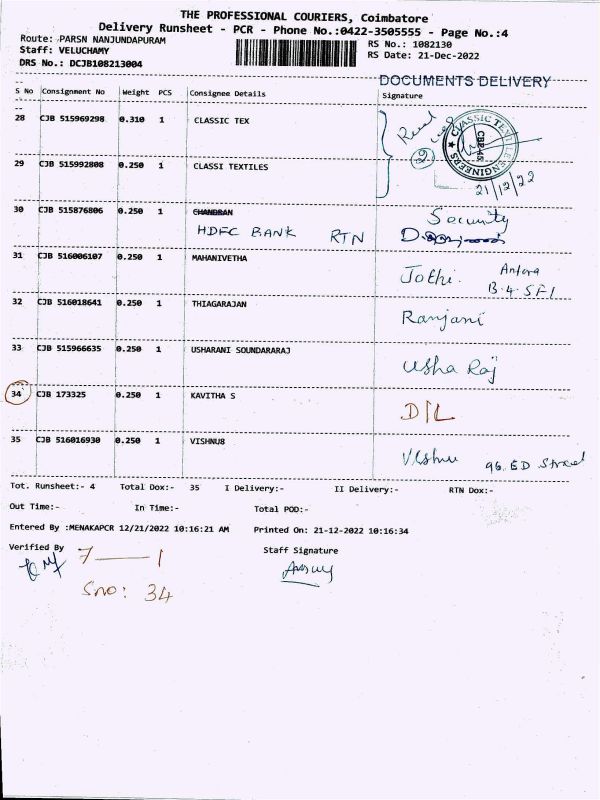 THE PROFESSIONAL COURIERS, Coimbatore
Delivery Runsheet - PCR - Phone No.:0422-3505555 - Page No.:4
Route: PARSN NANJUNDAPURAM
RS No.: 1082130
Staff: VELUCHAMY
RS Date: 21-Dec-2022
DRS No.: DCJB108213004
DOCUMENTS DELIVERY
S No Consignment No Weight PCS Consignee Details Signature
28 CJB 515969298 0.310 1 CLASSIC TEX
CLASSIC TEXTILE ENGINEERS
CBE-45
2
29 CJB 515992808 0.250 1 CLASSI TEXTILES
21/12/22
30 CJB 515876806 0.250 1 CHANDRAN Security
HDFC BANK RTN
31 CJB 516006107 0.250 1 MAHANIVETHA
Jothi. Antara
B.4.SFI
32 CJB 516018641 0.250 1 THIAGARAJAN
Ranjani
33 CJB 515966635 0.250 1 USHARANI SOUNDARARAJ
Usha Raj
34 CJB 173325 0.250 1 KAVITHA S
D/L
35 CJB 516016930 0.250 1 VISHNU8
Vishnu 96. ED Street
Tot. Runsheet:- 4 Total Dox:- 35 I Delivery:- II Delivery:- RTN Dox:-
Out Time:- In Time:- Total POD:-
Entered By :MENAKAPCR 12/21/2022 10:16:21 AM Printed On: 21-12-2022 10:16:34
Verified By Staff Signature
7 — 1
Sno: 34